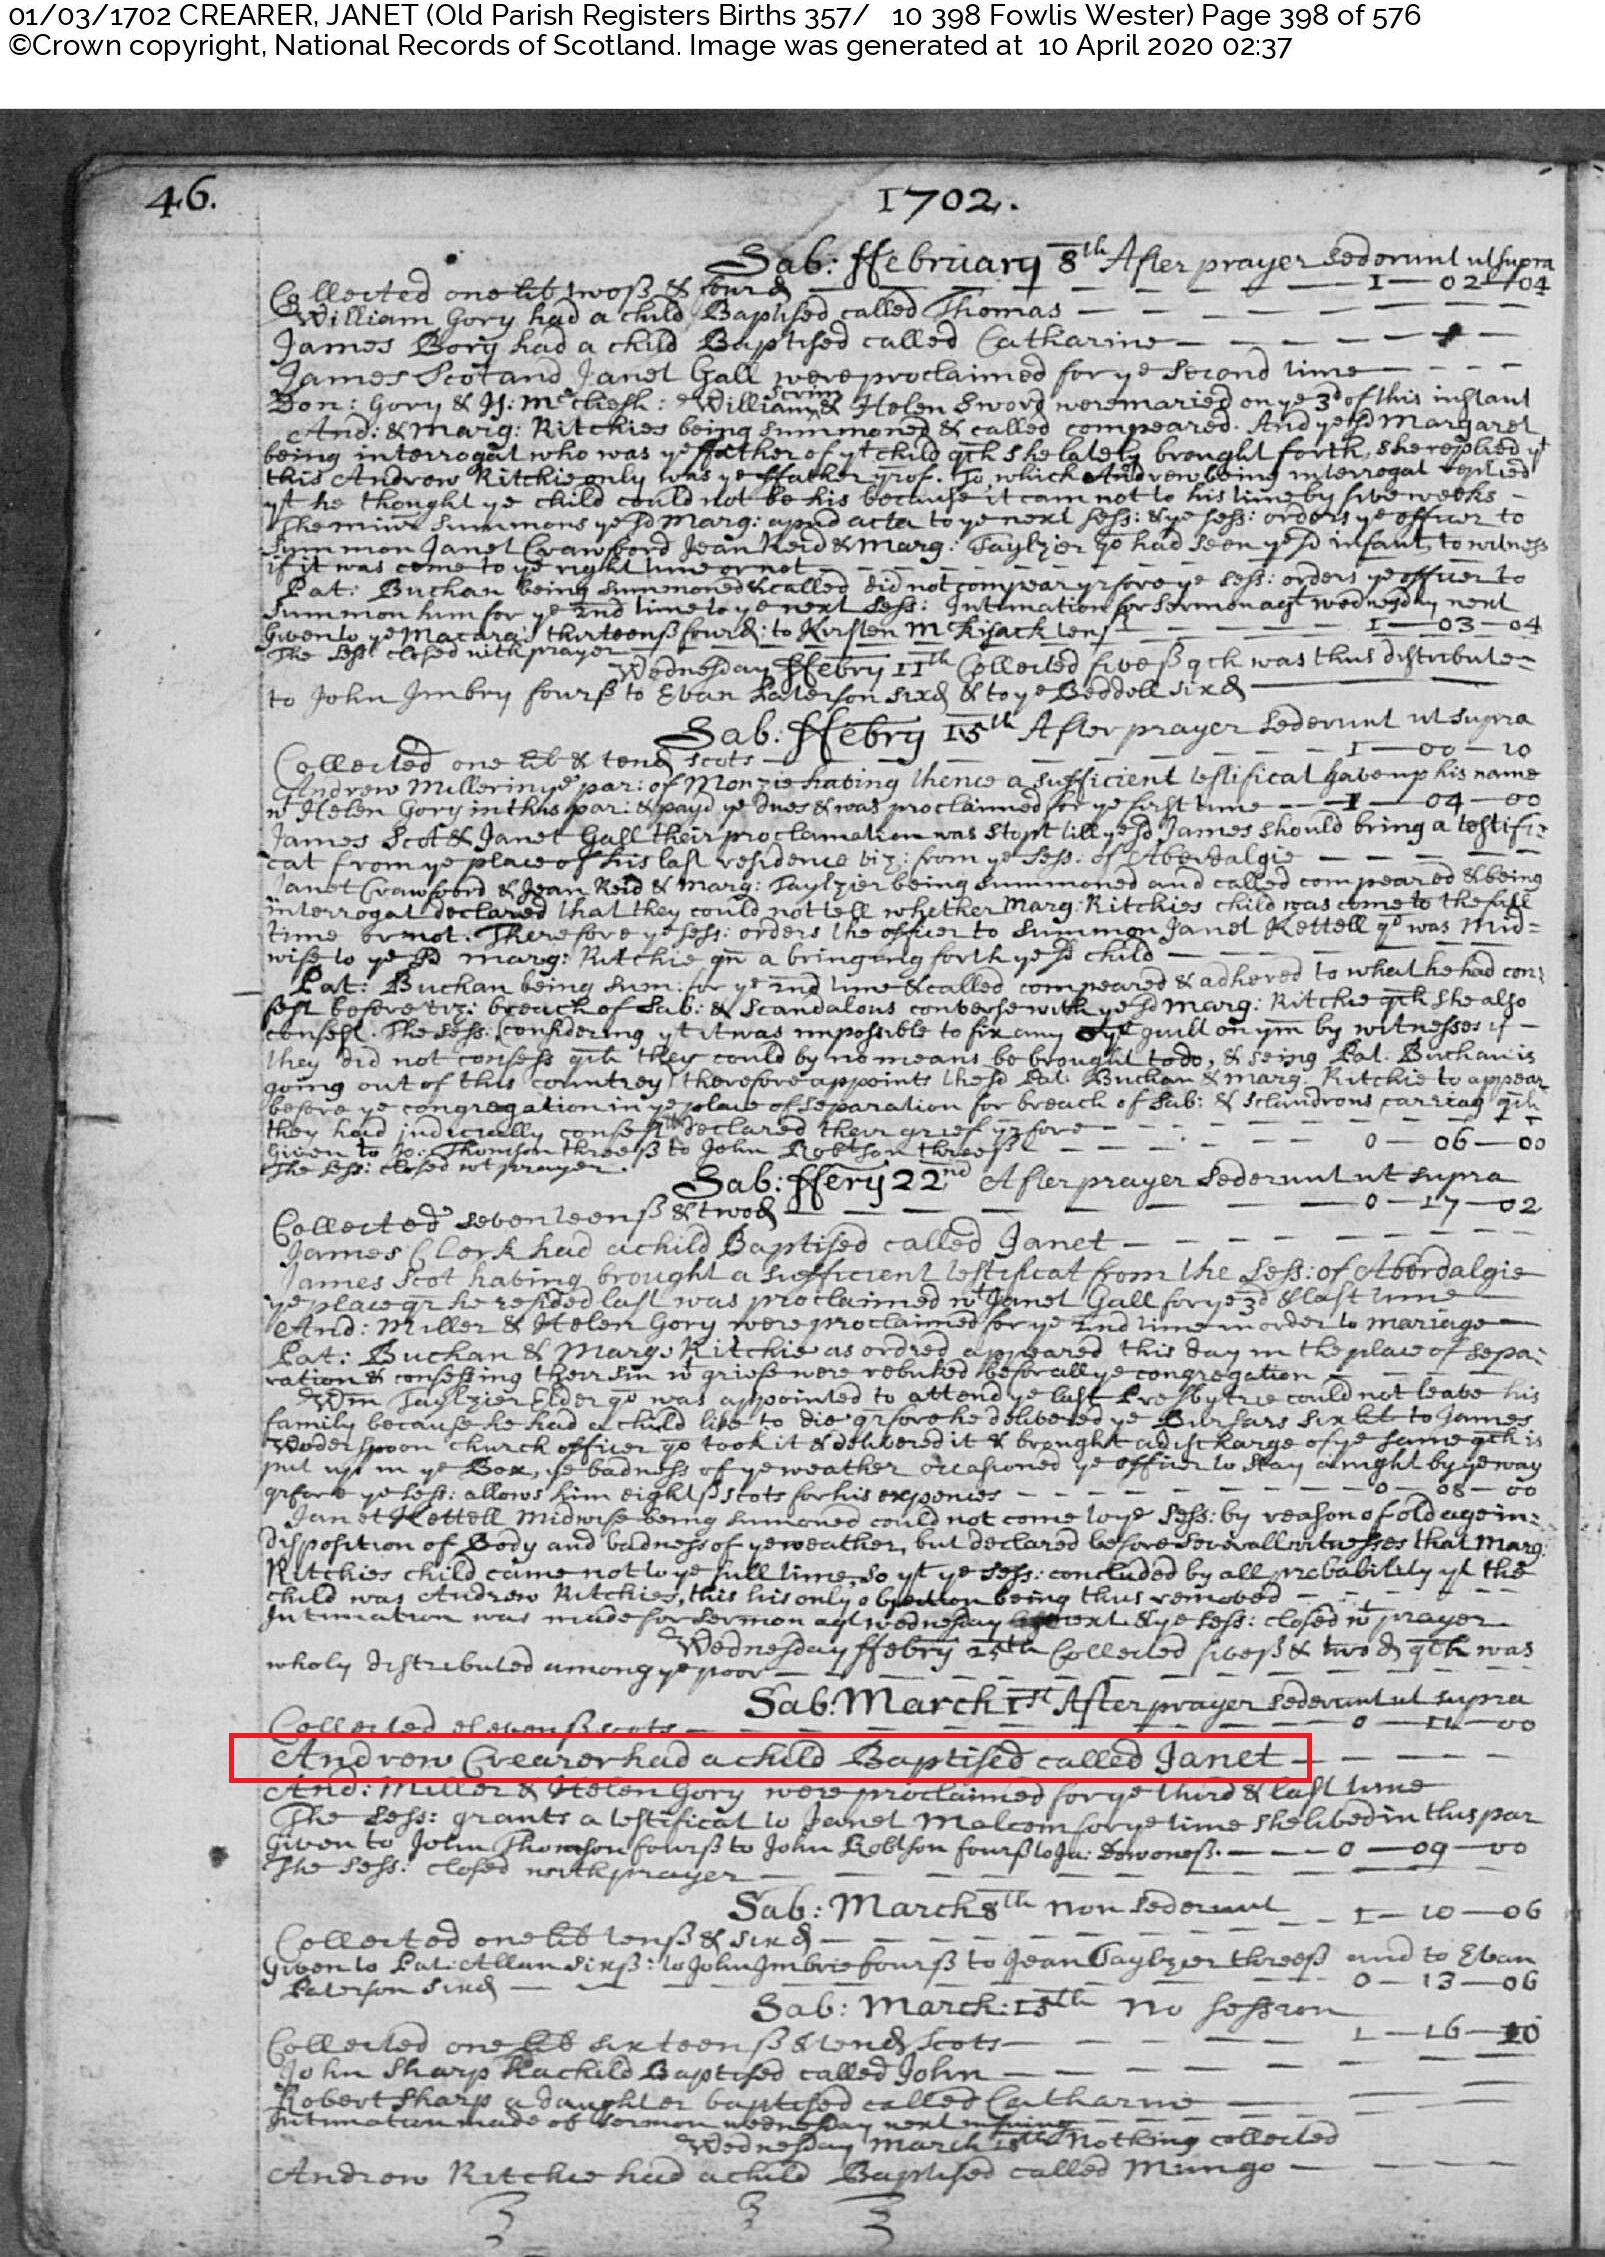 01/03/1702 CREARER, JANET (Old Parish Registers Births 357/ 10 398 Fowlis Wester) Page 398 of 576
©Crown copyright, National Records of Scotland. Image was generated at 10 April 2020 02:37
46. 1702.
Sab: ffebruary 8th After prayer sederunt ut supra
Collected one lib twoß & fourd 1 — 02 — 04
William Gory had a child Baptised called Thomas
James Bory had a child Baptised called Catharine
James Scot and Janet Gall were proclaimed for ye second time
Don: Gory & William Scrim & Helen Sword were maried on ye 3d of this instant
And: & Marg: Ritchies being summoned & called compeared. And ye sd Margaret
being interrogat who was ye ffather of yt child qch she lately brought forth, she replied yt
this Andrew Ritchie only was ye ffather yrof. To which Andrew being interrogat replied
yt he thought ye child could not be his because it cam not to his time by five weeks
The minr summons ye sd Marg: apud acta to ye next sess: & ye sess: orders ye officer to
summon Janet Crawford Jean Reid & Marg: Taylzier qo had seen ye sd infant, to witness
if it was come to ye right time or not
Pat: Buchan being summoned & called did not compear yrfore ye sess: orders ye officer to
summon him for ye 2nd time to ye next sess: Intimation for sermon agt wednesday next
Given to ye Macara's thirteenß fourd: to Kirsten McKisack tenß 1 — 03 — 04
The sess: closed with prayer
Wednesday ffebry 11th Collected fiveß qch was thus distribute
to John Imbry fourß to Evan Paterson sixd & to ye Beddell sixd
Sab: ffebry 15th After prayer sederunt ut supra
Collected one lib & tend scots 1 — 00 — 10
Andrew Miller in ye par: of Monzie having thence a sufficient testificat gave up his name
wt Helen Gory in this par: & payd ye dues & was proclaimed for ye first time 1 — 04 — 00
James Scot & Janet Gall their proclamation was stopt till ye sd James should bring a testifi-
cat from ye place of his last residence viz: from ye sess: of Aberdalgie
Janet Crawford & Jean Reid & Marg: Taylzier being summoned and called compeared & being
interrogat declared that they could not tell whether Marg: Ritchies child was come to the full
time or not. Therefore ye sess: orders the officer to summon Janet Kettell qo was Mid=
wife to ye sd Marg: Ritchie qn a bringing forth ye sd child
Pat: Buchan being sum: for ye 2nd time & called compeared & adhered to what he had con:
fest before viz: breach of Sab: & Scandalous converse with ye sd Marg: Ritchie qch she also
confest. The sess: considering yt it was impossible to fix any guilt on ym by witnesses if
they did not confess qch they could by no means be brought to do, & seing Pat. Buchan is
going out of this countrey therefore appoints the sd Pat: Buchan & Marg: Ritchie to appear
before ye congregation in ye place of separation for breach of Sab: & sclandrous carriag qch
they had judicially confest & declared their grief yrfore
Given to Jo: Thomson threeß to John Robtson threeß 0 — 06 — 00
The sess: closed wt prayer.
Sab: ffery 22nd After prayer sederunt ut supra
Collected seventeenß & twod 0 — 17 — 02
James Clerk had a child Baptised called Janet
James Scot having brought a sufficient testificat from the Sess: of Aberdalgie
ye place qr he resided last was proclaimed wt Janet Gall for ye 3d & last time
And: Miller & Helen Gory were proclaimed for ye 2nd time in order to mariage
Pat: Buchan & Marg: Ritchie as ordred appeared this day in the place of sepa:
ration & confessing their sin wt griefe were rebuked before all ye congregation
Wm Taylzier Elder qo was appointed to attend ye last Presbytrie could not leave his
family because he had a child like to die qrfore he delivered ye Bursars six lib to James
Woderspoon church officer qo took it & delivered it & brought a discharge of ye same qch is
put up in ye Box, ye badness of ye weather occasioned ye officer to stay a night by ye way
qrfore ye sess: allows him eightß scots for his expences 0 — 08 — 00
Janet Kettell Midwife being summoned could not come to ye Sess: by reason of old age in:
disposition of Body and badness of ye weather, but declared before severall witnesses that Marg:
Ritchies child came not to ye full time, so yt ye sess: concluded by all probability yt the
child was Andrew Ritchies, this his only objection being thus removed
Intimation was made for sermon agt wednesday next & ye sess: closed wt prayer
Wednesday ffebry 25th Collected fiveß & twod qch was
wholy distributed among ye poor
Sab: March 1st After prayer sederunt ut supra
Collected elevenß scots 0 — 11 — 00
Andrew Crearer had a child Baptised called Janet
And: Miller & Helen Gory were proclaimed for ye third & last time
The Sess: grants a testificat to Janet Malcom for ye time she lived in this par
Given to John Thomson fourß to John Robtson fourß to Ja: oneß. 0 — 09 — 00
The Sess: closed with prayer
Sab: March 8th non sederunt
Collected one lib tenß & sixd 1 — 10 — 06
Given to Pat: Allan sixß: to John Imbrie fourß to Jean Taylzier threeß and to Evan
Paterson sixd 0 — 13 — 06
Sab: March: 15th No session
Collected one lib sixteenß & tend scots 1 — 16 — 10
John Sharp had a child Baptised called John
Robert Sharp a daughter baptised called Catharine
Intimation made of sermon wednesday next ensuing
Wednesday March 18th Nothing collected
Andrew Ritchie had a child Baptised called Mungo